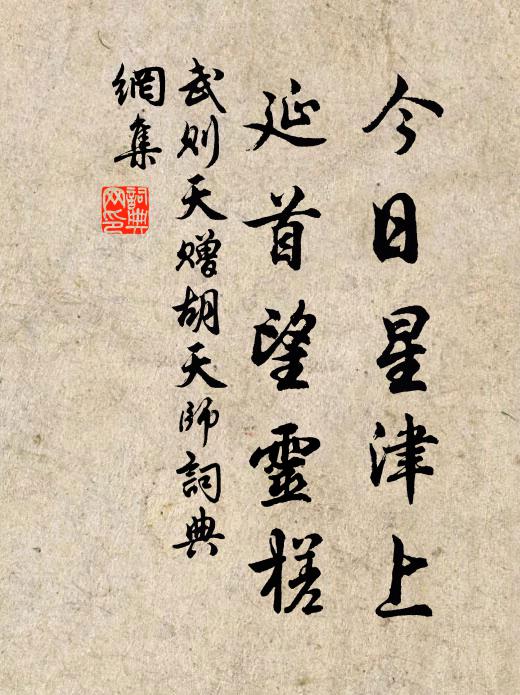 今日星津上
延首望靈槎
武則天贈胡天師詞典
網集
詞典網印